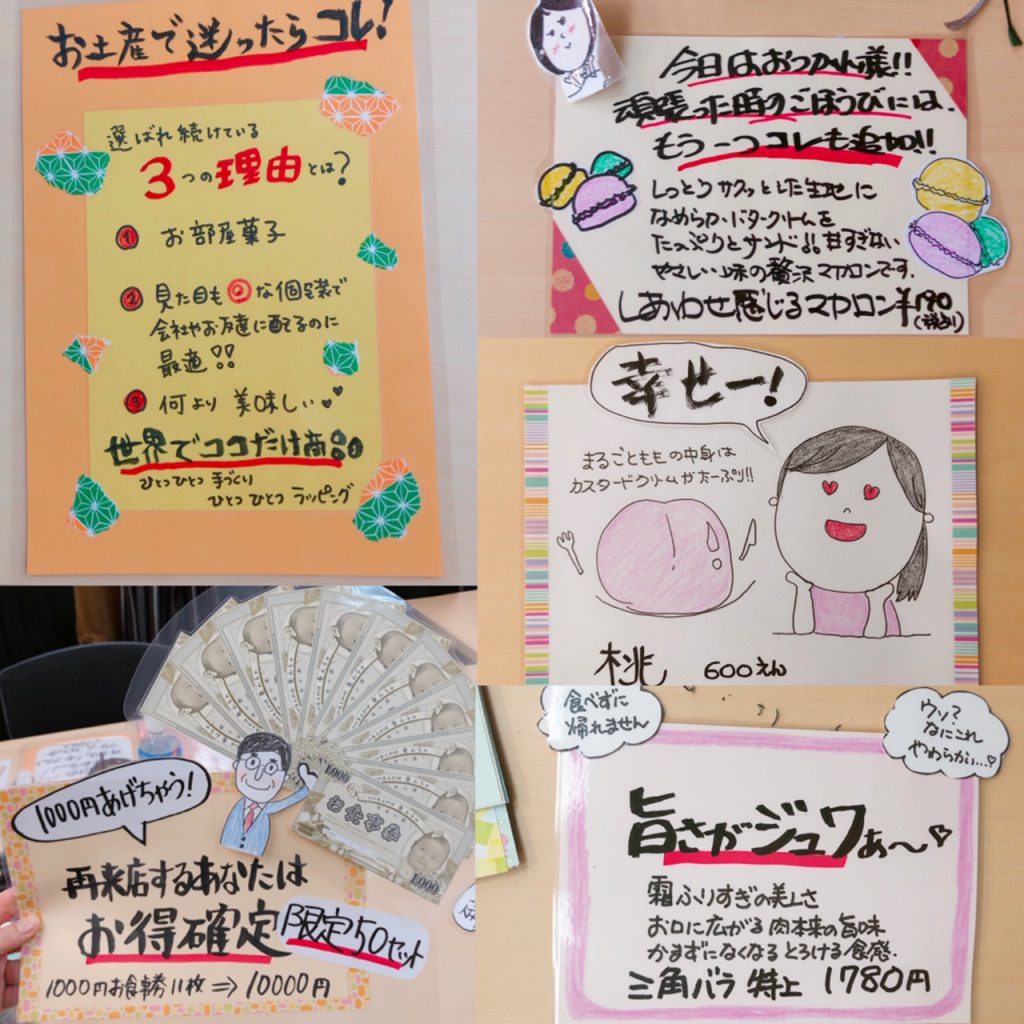 お土産で迷ったらコレ!
選ばれ続けている
3つの理由とは?
1 お部屋菓子
2 見た目も◎な個包装で
会社やお友達に配るのに
最適!!
3 何より美味しい♥♥
世界でココだけ商品
ひとつひとつ 手づくり
ひとつひとつ ラッピング
今日はおつかれ様!!
頑張った時のごほうびには、
もう一つコレも追加!!
しっとりサクッとした生地に
なめらかバタークリームを
たっぷりとサンド!!甘すぎない
やさしい味の贅沢マカロンです。
しあわせ感じるマカロン¥190
(税込)
幸せー!
まるごとももの中身は
カスタードクリームがたーぷり!!
桃 600えん
1000円あげちゃう!
お食事券
1,000
1,000
再来店するあなたは
お得確定
限定50セット
1000円お食事券11枚⇒10000円
食べずに
帰れません
ウソ?
なにこれ
やわらかい…♡
旨さがジュワぁ〜♡
霜ふりすぎの美しさ
お口に広がる肉本来の旨味
かまずになくなるとろける食感。
三角バラ 特上 1780円